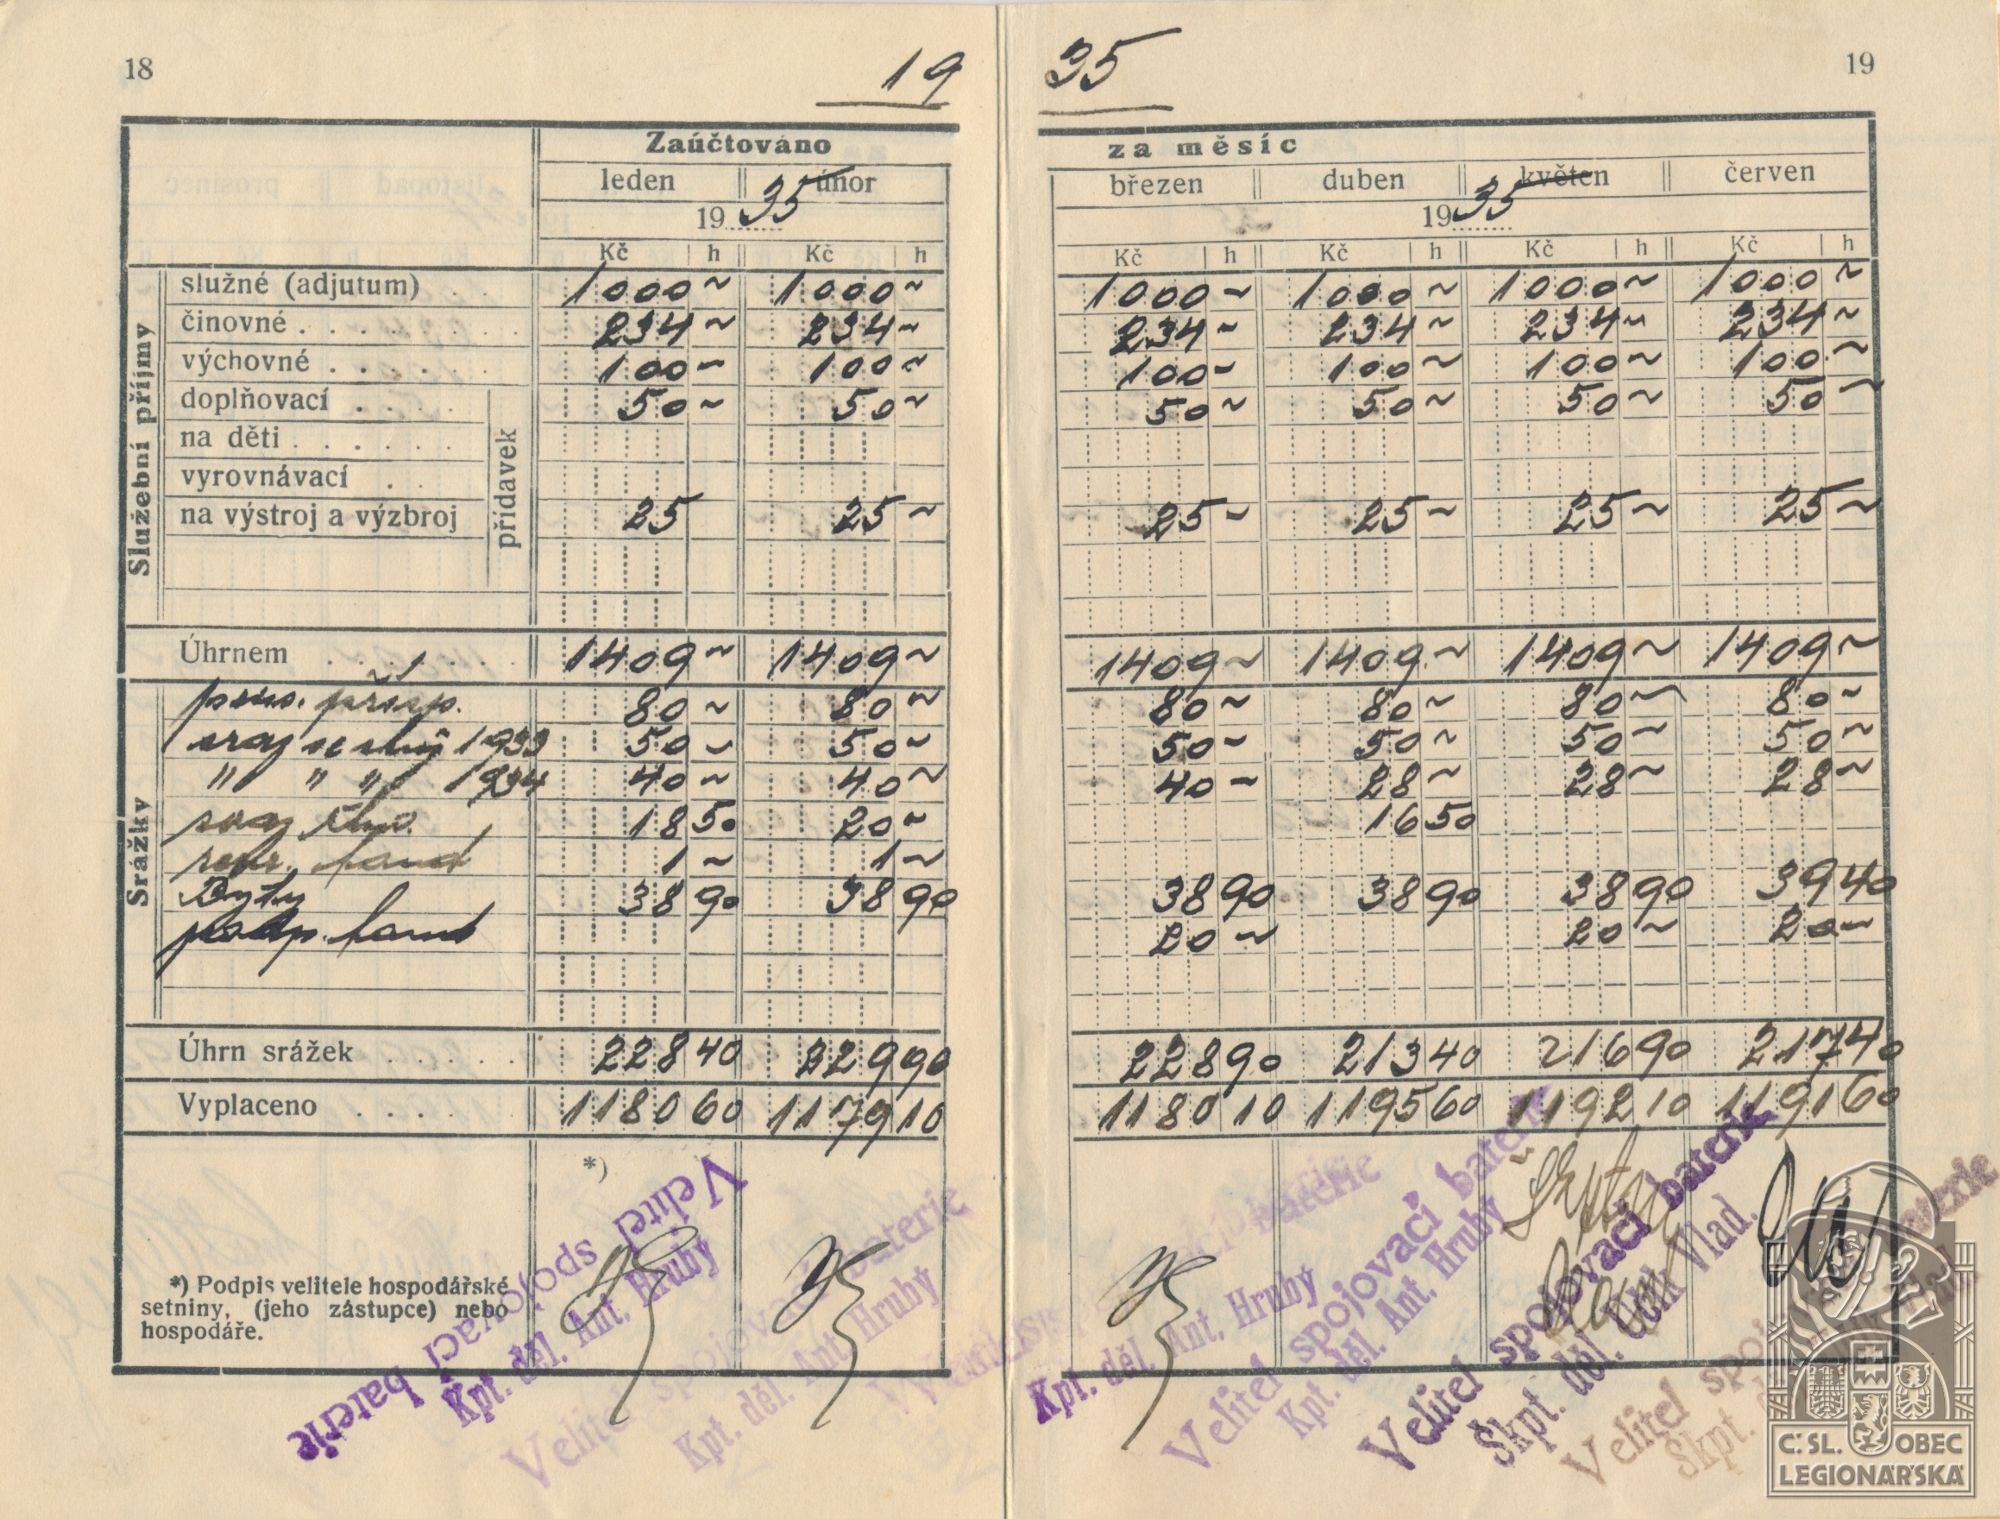 18
19 35
19
Zaúčtováno za měsíc
leden únor březen duben květen červen
19 35 19 35
Kč h Kč h Kč h Kč h Kč h Kč h
Služební příjmy
služné (adjutum) . . 1000 ~ 1000 ~ 1000 ~ 1000 ~ 1000 ~ 1000 ~
činovné . . . . . . 234 ~ 234 ~ 234 ~ 234 ~ 234 ~ 234 ~
výchovné . . . . . 100 ~ 100 ~ 100 ~ 100 ~ 100 ~ 100 ~
přídavek
doplňovací . . . 50 ~ 50 ~ 50 ~ 50 ~ 50 ~ 50 ~
na děti . . . . .
vyrovnávací . .
na výstroj a výzbroj 25 25 ~ 25 ~ 25 ~ 25 ~ 25 ~
Úhrnem . . . . . . 1409 ~ 1409 ~ 1409 ~ 1409 ~ 1409 ~ 1409 ~
Srážky
přísp. 80 ~ 80 ~ 80 ~ 80 ~ 80 ~ 80 ~
1933 50 ~ 50 ~ 50 ~ 50 ~ 50 ~ 50 ~
" " " 1934 40 ~ 40 ~ 40 ~ 28 ~ 28 ~ 28 ~
18 50 20 ~ 16 50
1 ~ 1 ~
Byty 38 90 38 90 38 90 38 90 38 90 39 40
20 ~ 20 ~ 20 ~
Úhrn srážek . . . . . 228 40 229 90 228 90 213 40 216 90 217 40
Vyplaceno . . . . . . 1180 60 1179 10 1180 10 1195 60 1192 10 1191 60
*)
*) Podpis velitele hospodářské
setniny, (jeho zástupce) nebo
hospodáře.
Velitel spojovací baterie
Kpt. děl. Ant. Hrubý
Velitel spojovací baterie
Kpt. děl. Ant. Hrubý
baterie
Kpt. děl. Ant. Hrubý
Velitel spojovací baterie
Kpt. děl. Ant. Hrubý
Velitel spojovací baterie
Škpt. děl. Vlad.
Velitel spojovací baterie
Škpt.
Č. SL. OBEC
LEGIONÁŘSKÁ